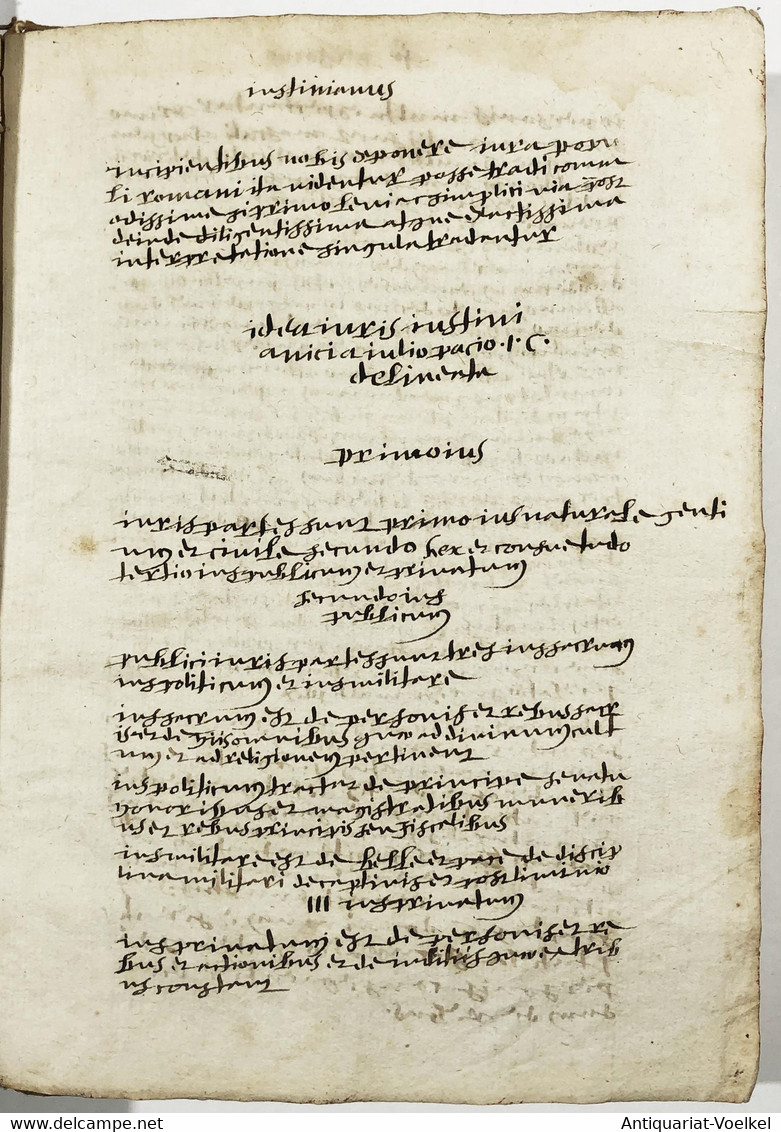 iustinianus
incipientibus nobis exponere iura popu
li romani ita videntur posse tradi comm
odissime si primo levi ac simplici via post
deinde diligentissima atque exactissima
interpretatione singula tradantur
idea iuris iustini
anici a iulio pacio. I. C.
delineata
primo ius
iuris partes sunt primo ius naturale genti
um et civile secundo lex et consuetudo
tertio ius publicum et privatum
secundo ius
publicum
publici iuris partes sunt tres ius sacrum
ius politicum et ius militare
ius sacrum est de personis et rebus sacr
is et de iis omnibus quae ad divinum cult
um et ad religionem pertinent
ius politicum tractat de principe senatu
honoribus et magistratibus munerib
us et rebus principis seu fiscalibus
ius militare est de bello et pace de discip
lina militari de captivis et postliminio
III ius privatum
ius privatum est de personis et re
bus et actionibus et de iudiciis quae ex trib
us constant
Antiquariat-Voelkel